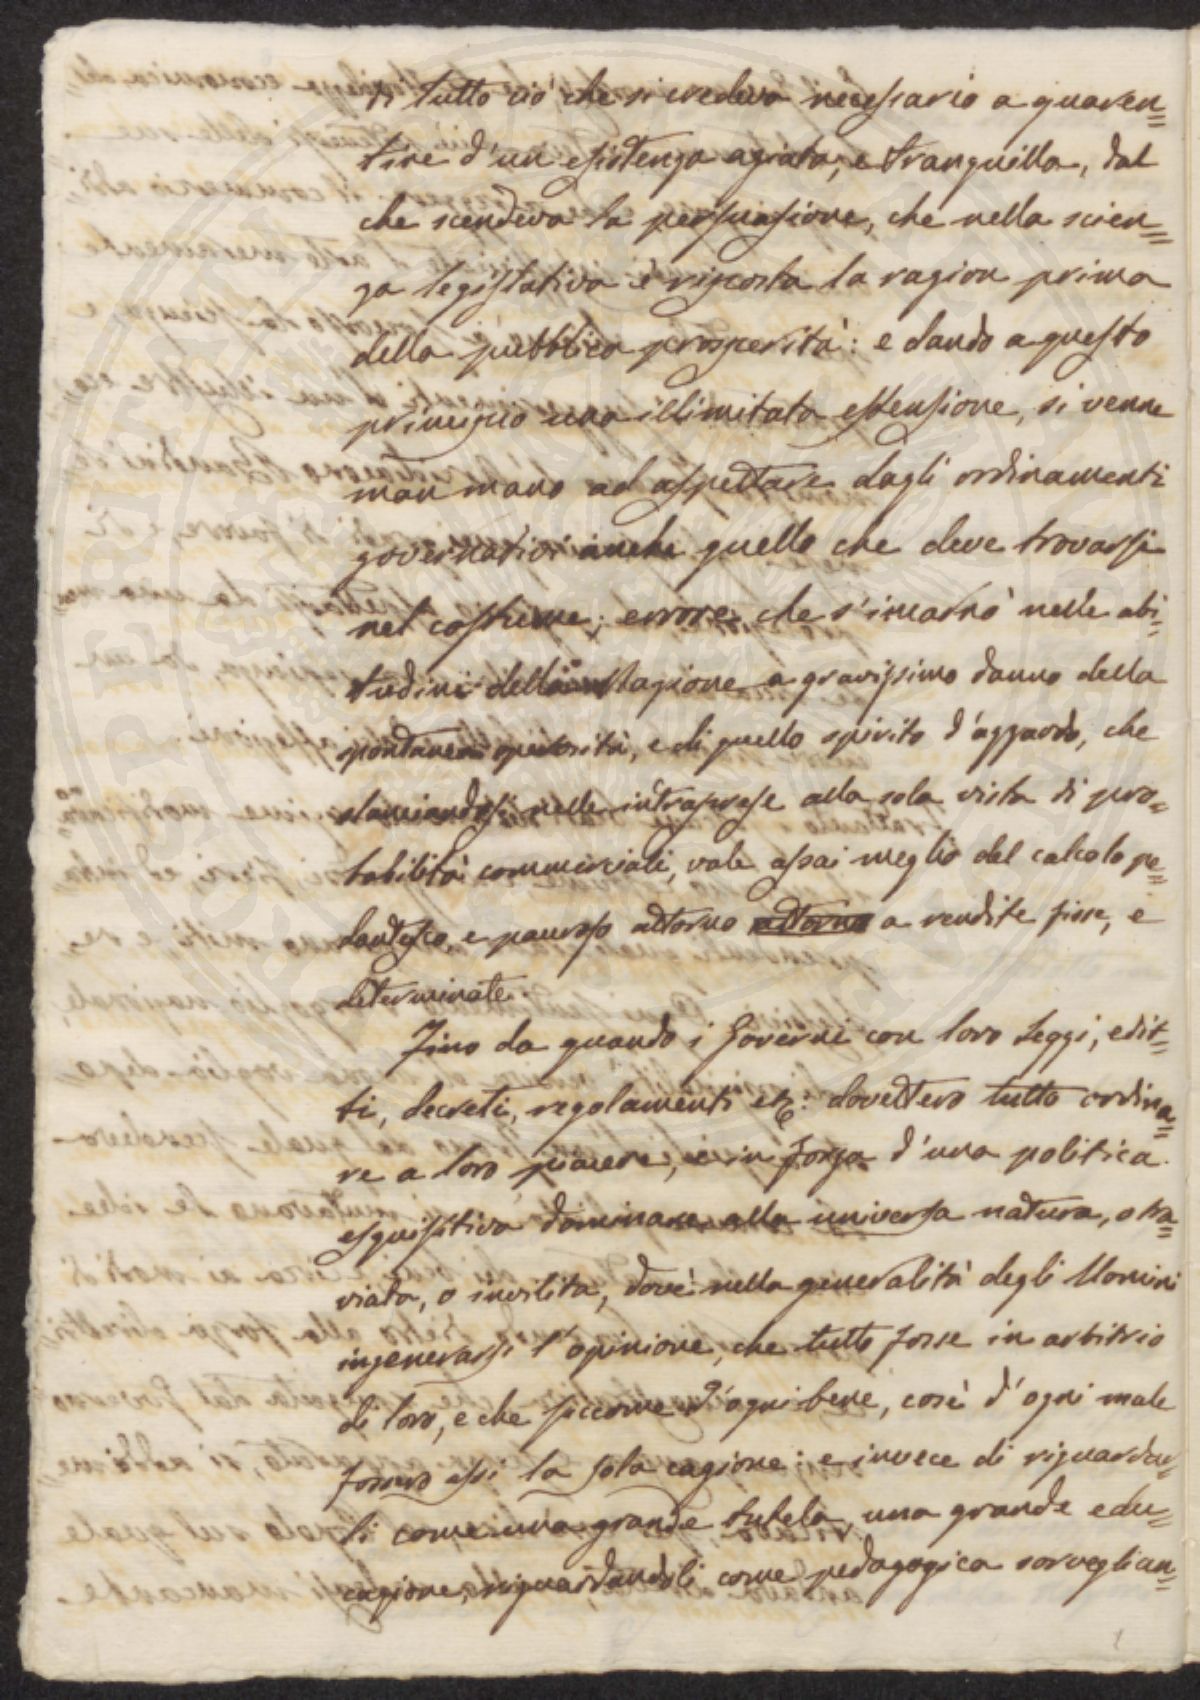 di tutto ciò che si credeva necessario a guaren=
tire d'un esistenza agiata, e tranquilla, dal
che scendeva la persuasione, che nella scien=
za legislativa è riposta la ragion prima
della pubblica prosperità: e dando a questo
principio una illimitata estensione, si venne
man mano ad aspettare dagli ordinamenti
governativi anche quello che deve trovarsi
nel costume; errore, che s'incarnò nelle abi=
tudini della stagione a gravissimo danno della
spontanea operosità, e di quello spirito d'azzardo, che
slanciandosi nelle intraprese alla sola vista di pro=
babilità commerciali, vale assai meglio del calcolo pe=
dantesco, e pauroso attorno attorno a rendite fisse, e
determinate.
Fino da quando i Governi con loro Leggi, edit=
ti, decreti, regolamenti etc: dovettero tutto ordina=
re a loro piacere, e in forza d'una politica
esquisitiva dominare alla universa natura, o tra=
viata, o invilita, dovè nella generalità degli Uomini
ingenerarsi l'opinione, che tutto fosse in arbitrio
di loro, e che siccome d'ogni bene, così d'ogni male
fossero essi la sola cagione: e invece di riguardar=
li come una grande tutela, una grande edu=
cazione, riguardandoli come pedagogica sorveglian=